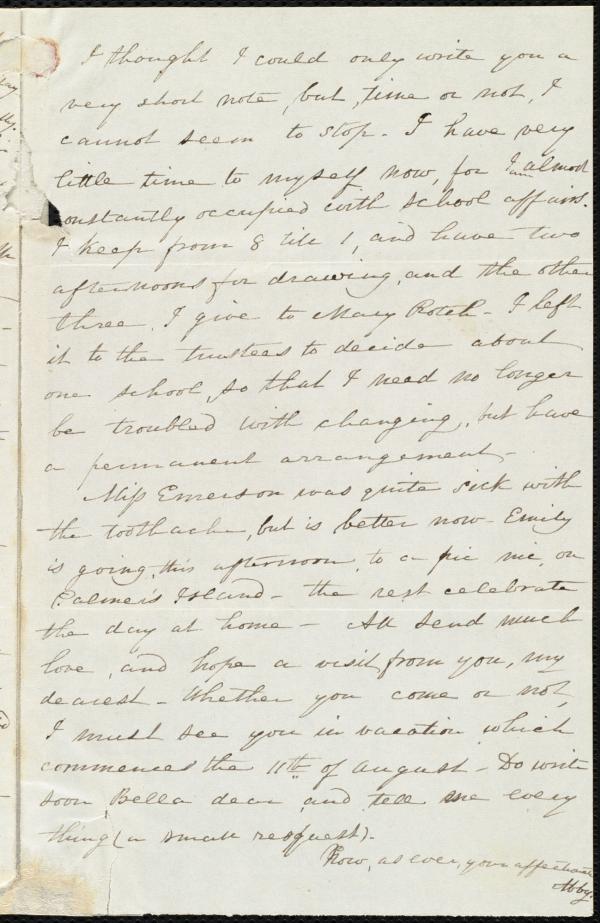 I thought I could only write you a
very short note, but, time or not, I
cannot seem to stop. I have very
little time to myself now, for I am almost
constantly occupied with school affairs.
I keep from 8 till 1, and have two
afternoons for drawing, and the other
three, I give to Mary Rotch - I left
it to the trustees to decide about
one school, so that I need no longer
be troubled with changing, but have
a permanent arrangement -
Miss Emerson was quite sick with
the toothache, but is better now - Emily
is going, this afternoon, to a pic nic, on
Palmer's Island - the rest celebrate
the day at home - All send much
love, and hope a visit from you, my
dearest - Whether you come or not,
I must see you in vacation which
commences the 11th of August - Do write
soon, Bella dear and tell me every
thing (a small request).
Now, as ever, your affectionate
Abby.